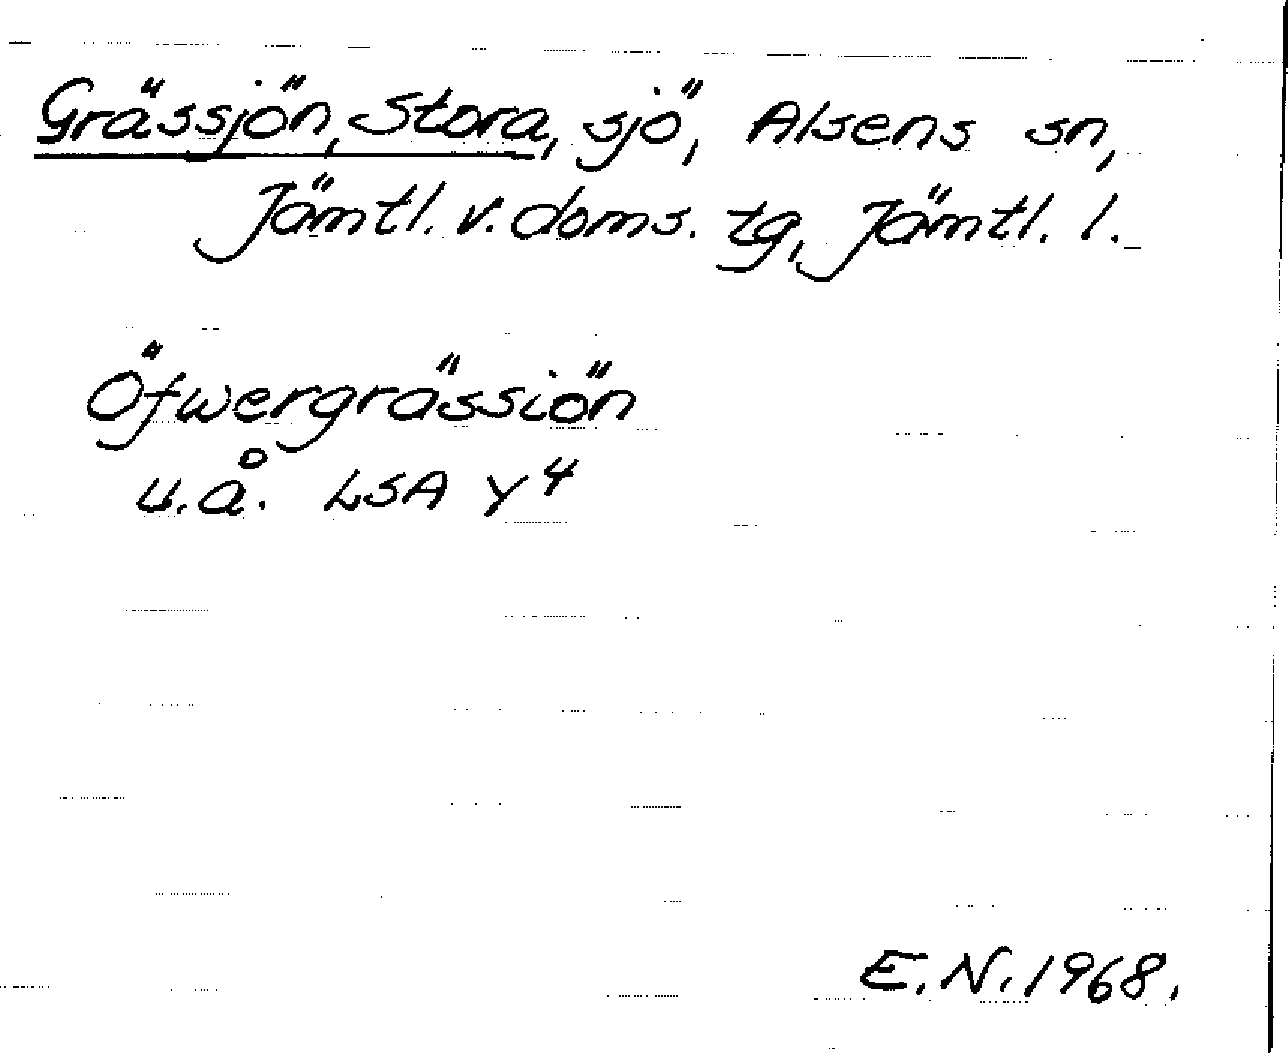 Grässjön, Stora, sjö, Alsens sn,
Jämtl. v. doms. tg, Jämtl. l.
Öfwergrässiön
u.å. LSA Y4
E.N. 1968.